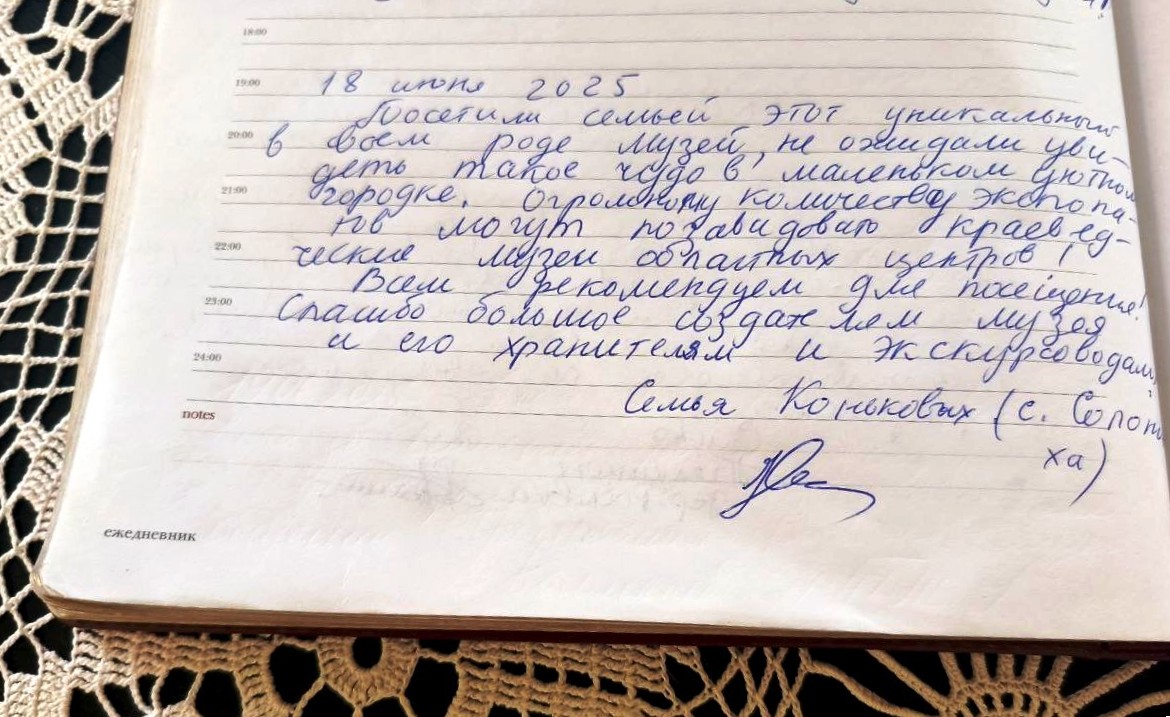 18:00
19:00
18 июня 2025
Посетили семьей этот уникальный
20:00
в своем роде музей, не ожидали уви-
деть такое чудо в маленьком уютном
21:00
городке. Огромному количеству экспона-
тов могут позавидовать краевед-
22:00
ческие музеи областных центров!
Всем рекомендуем для посещения!
23:00
Спасибо большое создателям музея
и его хранителям и экскурсоводам
24:00
Семья Коньковых (с.
notes
ха)
ежедневник